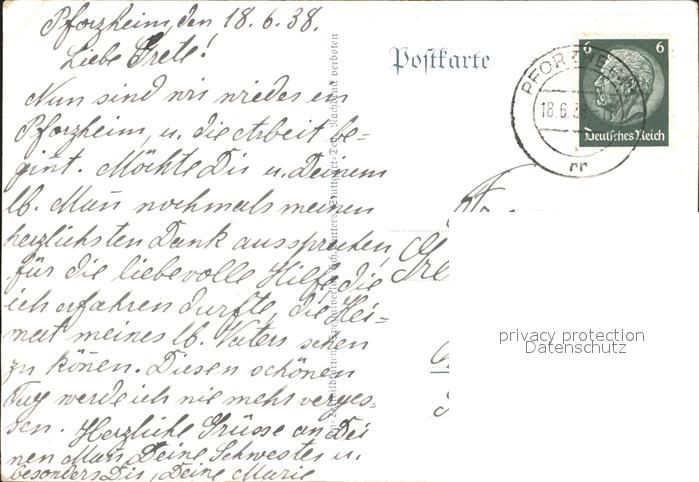 Pforzheim, den 18.6.38.
Liebe Grete!
Nun sind wir wieder in
Pforzheim, u. die Arbeit be-
gint. Möchte Dir u. Deinem
lb. Man nochmals meinen
herzlichsten Dank aussprechen,
für die liebevolle Hilfe, die
ich erfahren durfte, die Hei-
mat meines lb. Vaters sehen
zu könen. Diesen schönen
Tag werde ich nie mehr verges-
sen. Herzliche Grüsse an Dei
nen Man, Deine Schwester u.
besonders Dir, Deine Marie
Nachdruck verboten
Postkarte
6 6
Deutsches Reich
PFORZHEIM
18.6.38
rr
Gre
privacy protection
Datenschutz